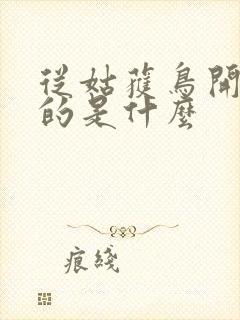 從姑獲鳥開
的是什麼
痕綫